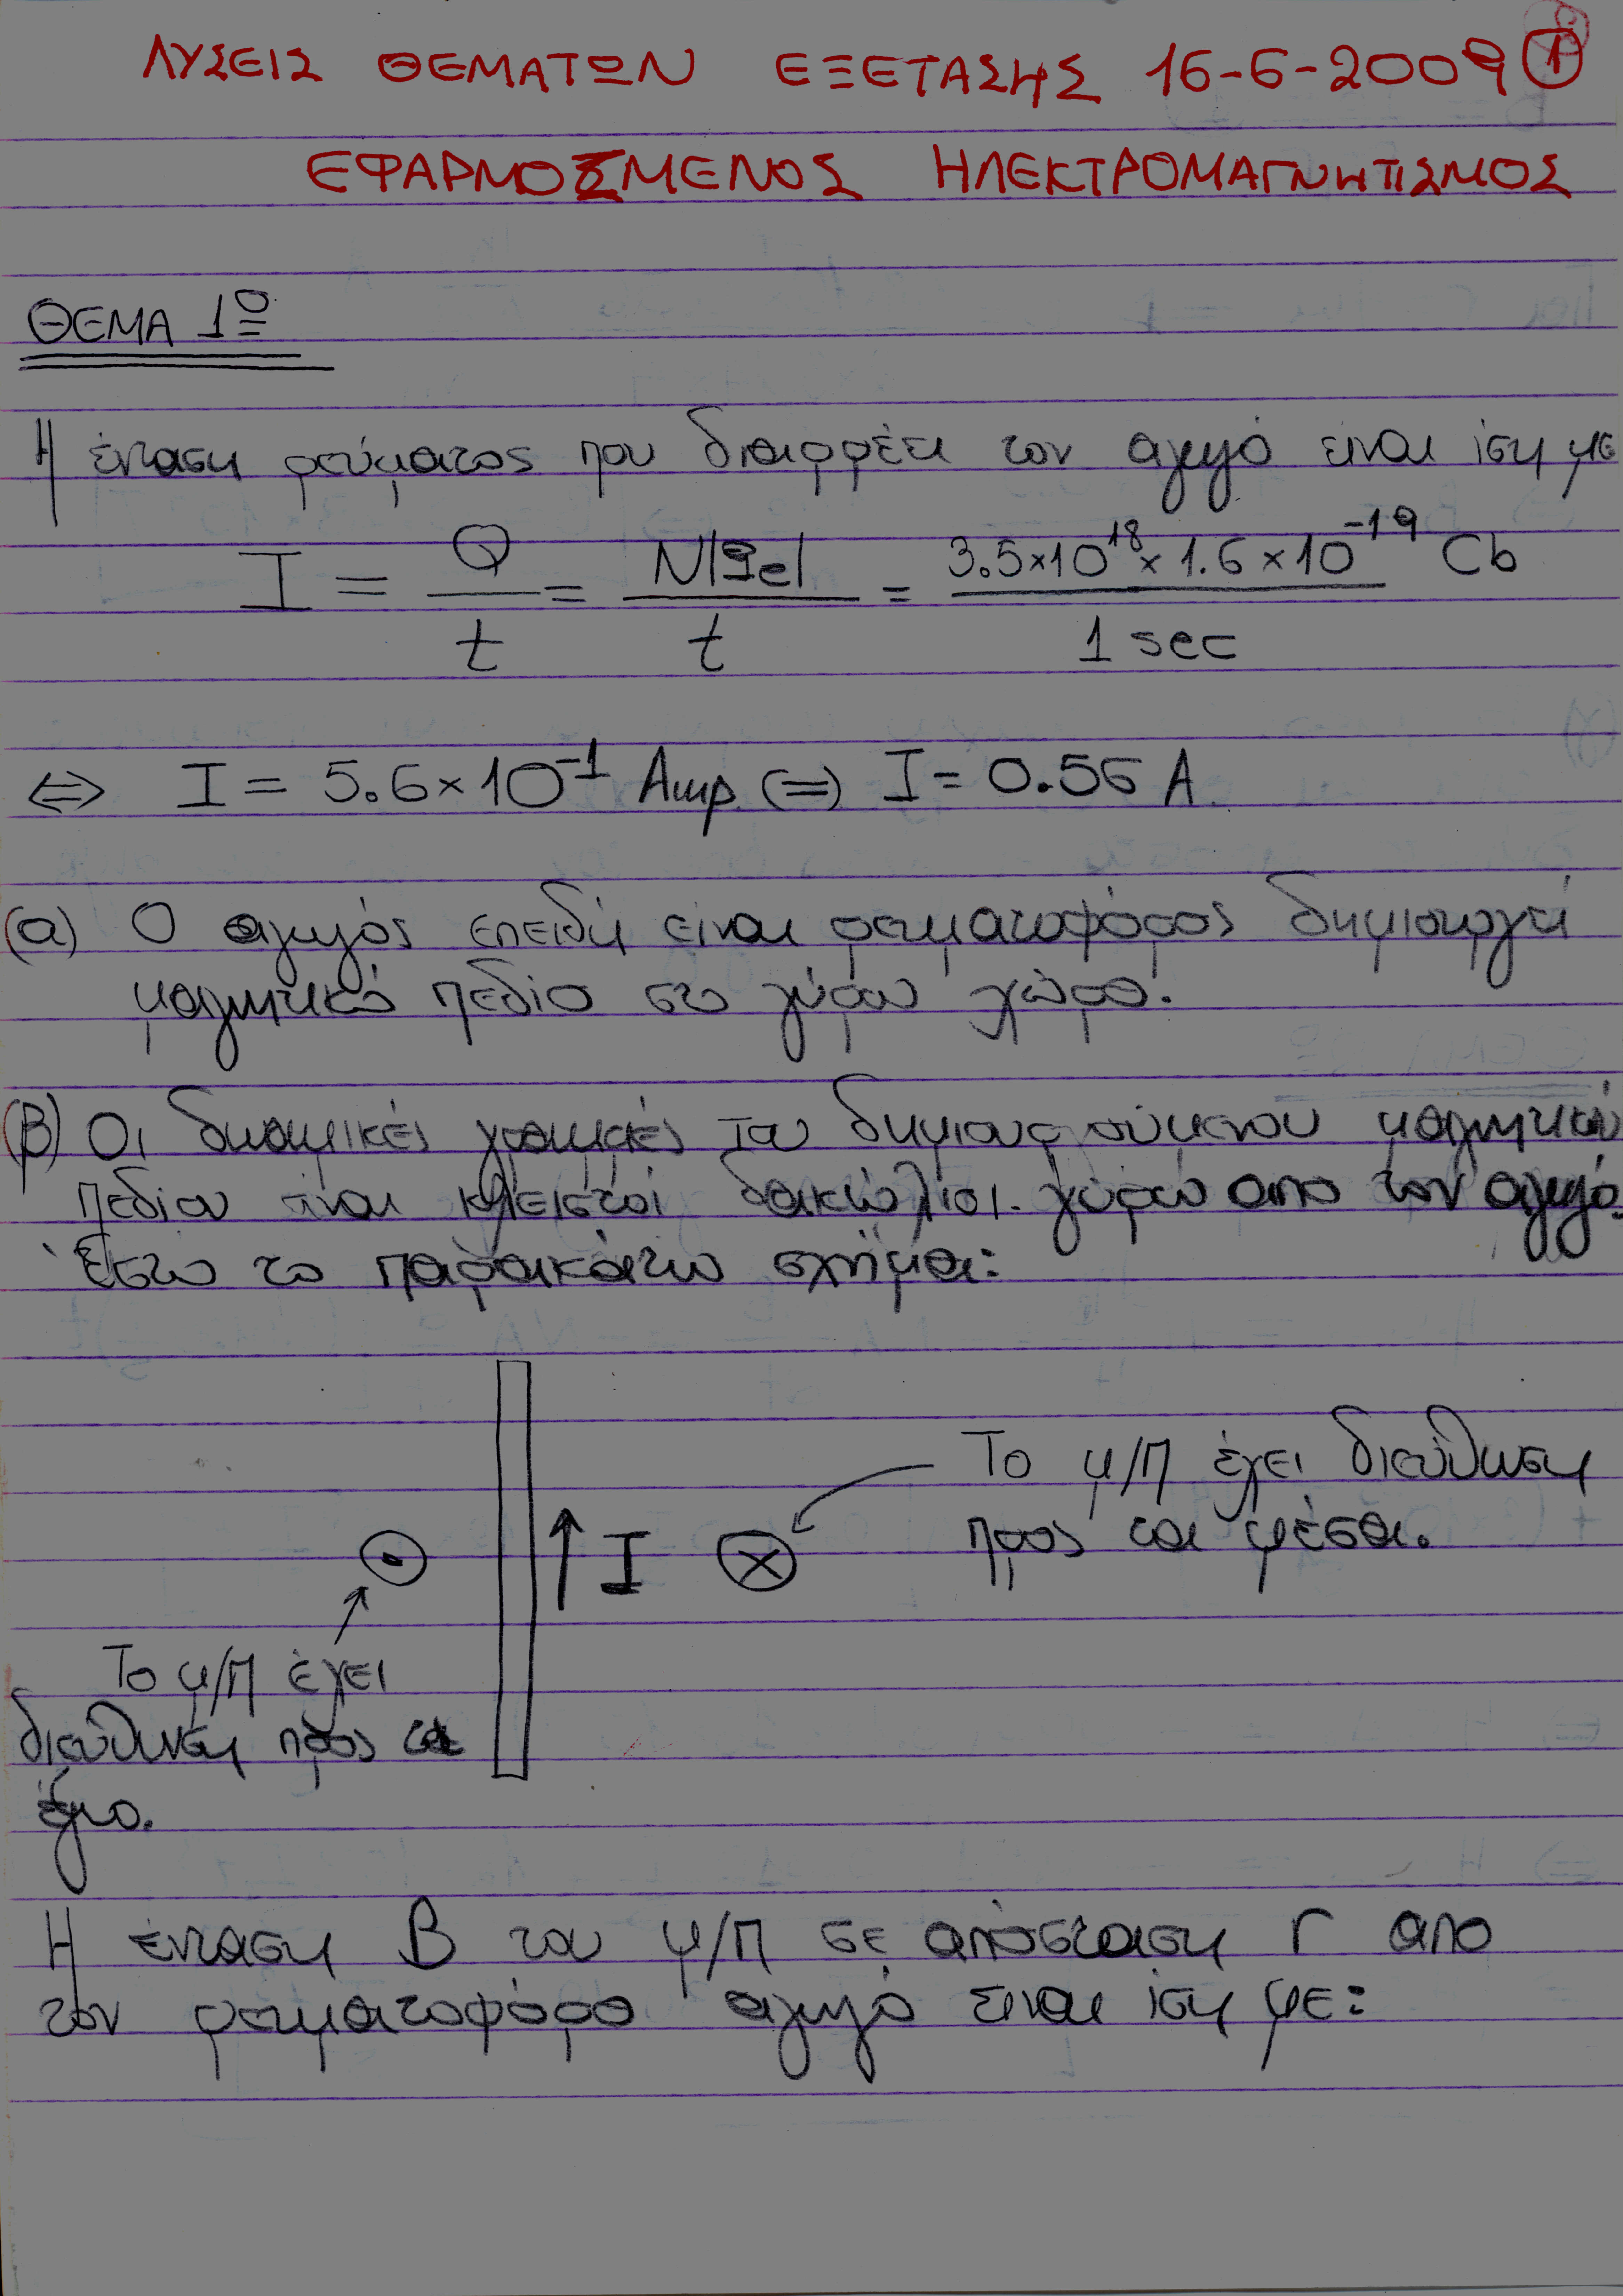 ΛΥΣΕΙΣ ΘΕΜΑΤΩΝ ΕΞΕΤΑΣΗΣ 16-6-2009 ①
ΕΦΑΡΜΟΣΜΕΝΟΣ ΗΛΕΚΤΡΟΜΑΓΝΗΤΙΣΜΟΣ
ΘΕΜΑ 1º
Η ένταση ρεύματος που διαρρέει τον αγωγό είναι ίση με
I = Q/t = N|qe|/t = 3.5×10^18 × 1.6×10^-19 Cb / 1 sec
⇔ I = 5.6×10^-1 Amp. (=) I = 0.56 A.
(α) Ο αγωγός επειδή είναι ρευματοφόρος δημιουργεί
μαγνητικό πεδίο στο γύρω χώρο.
(β) Οι δυναμικές γραμμές του δημιουργούμενου μαγνητικού
πεδίου είναι κλειστοί δακτύλιοι γύρω απο τον αγωγό.
Έστω το παρακάτω σχήμα:
Το μ/Π έχει διεύθυνση
προς τα μέσα.
I
Το μ/Π έχει
διεύθυνση προς τα
έξω.
Η ένταση B του μ/Π σε απόσταση r απο
τον ρευματοφόρο αγωγό είναι ίση με: